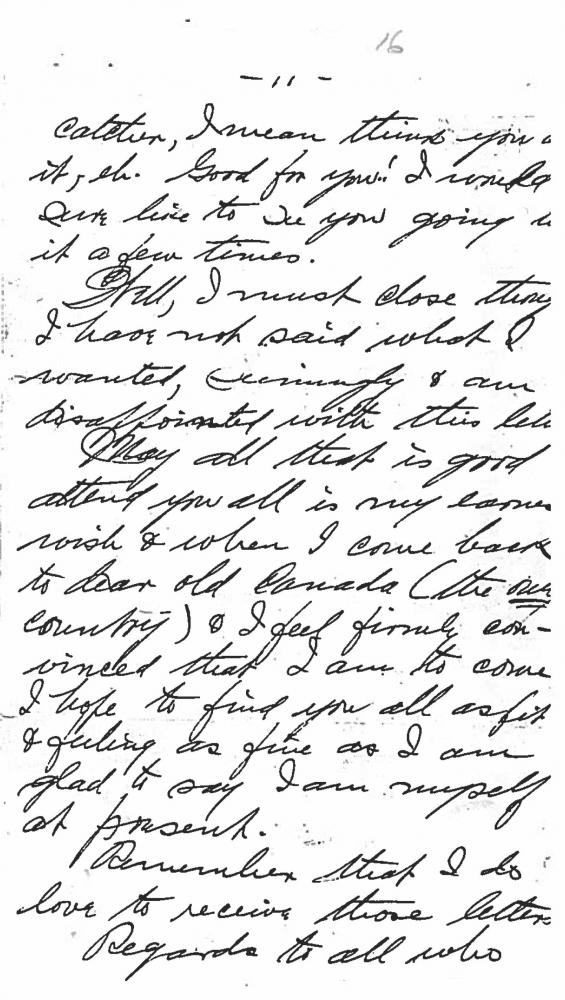 16
- 11 -
catcher, I mean think you
it, eh. Good for you! I would
sure like to see you going
it a few times.
Well, I must close thoug
I have not said what I
wanted, seemingly & am
disappointed with this let
May all that is good
attend you all is my earnes
wish & when I come back
to dear old Canada (the one
country) & I feel firmly con-
vinced that I am to come
I hope to find you all as fit
& feeling as fine as I am
glad to say I am myself
at present.
Remember that I do
love to receive those letters
Regards to all who